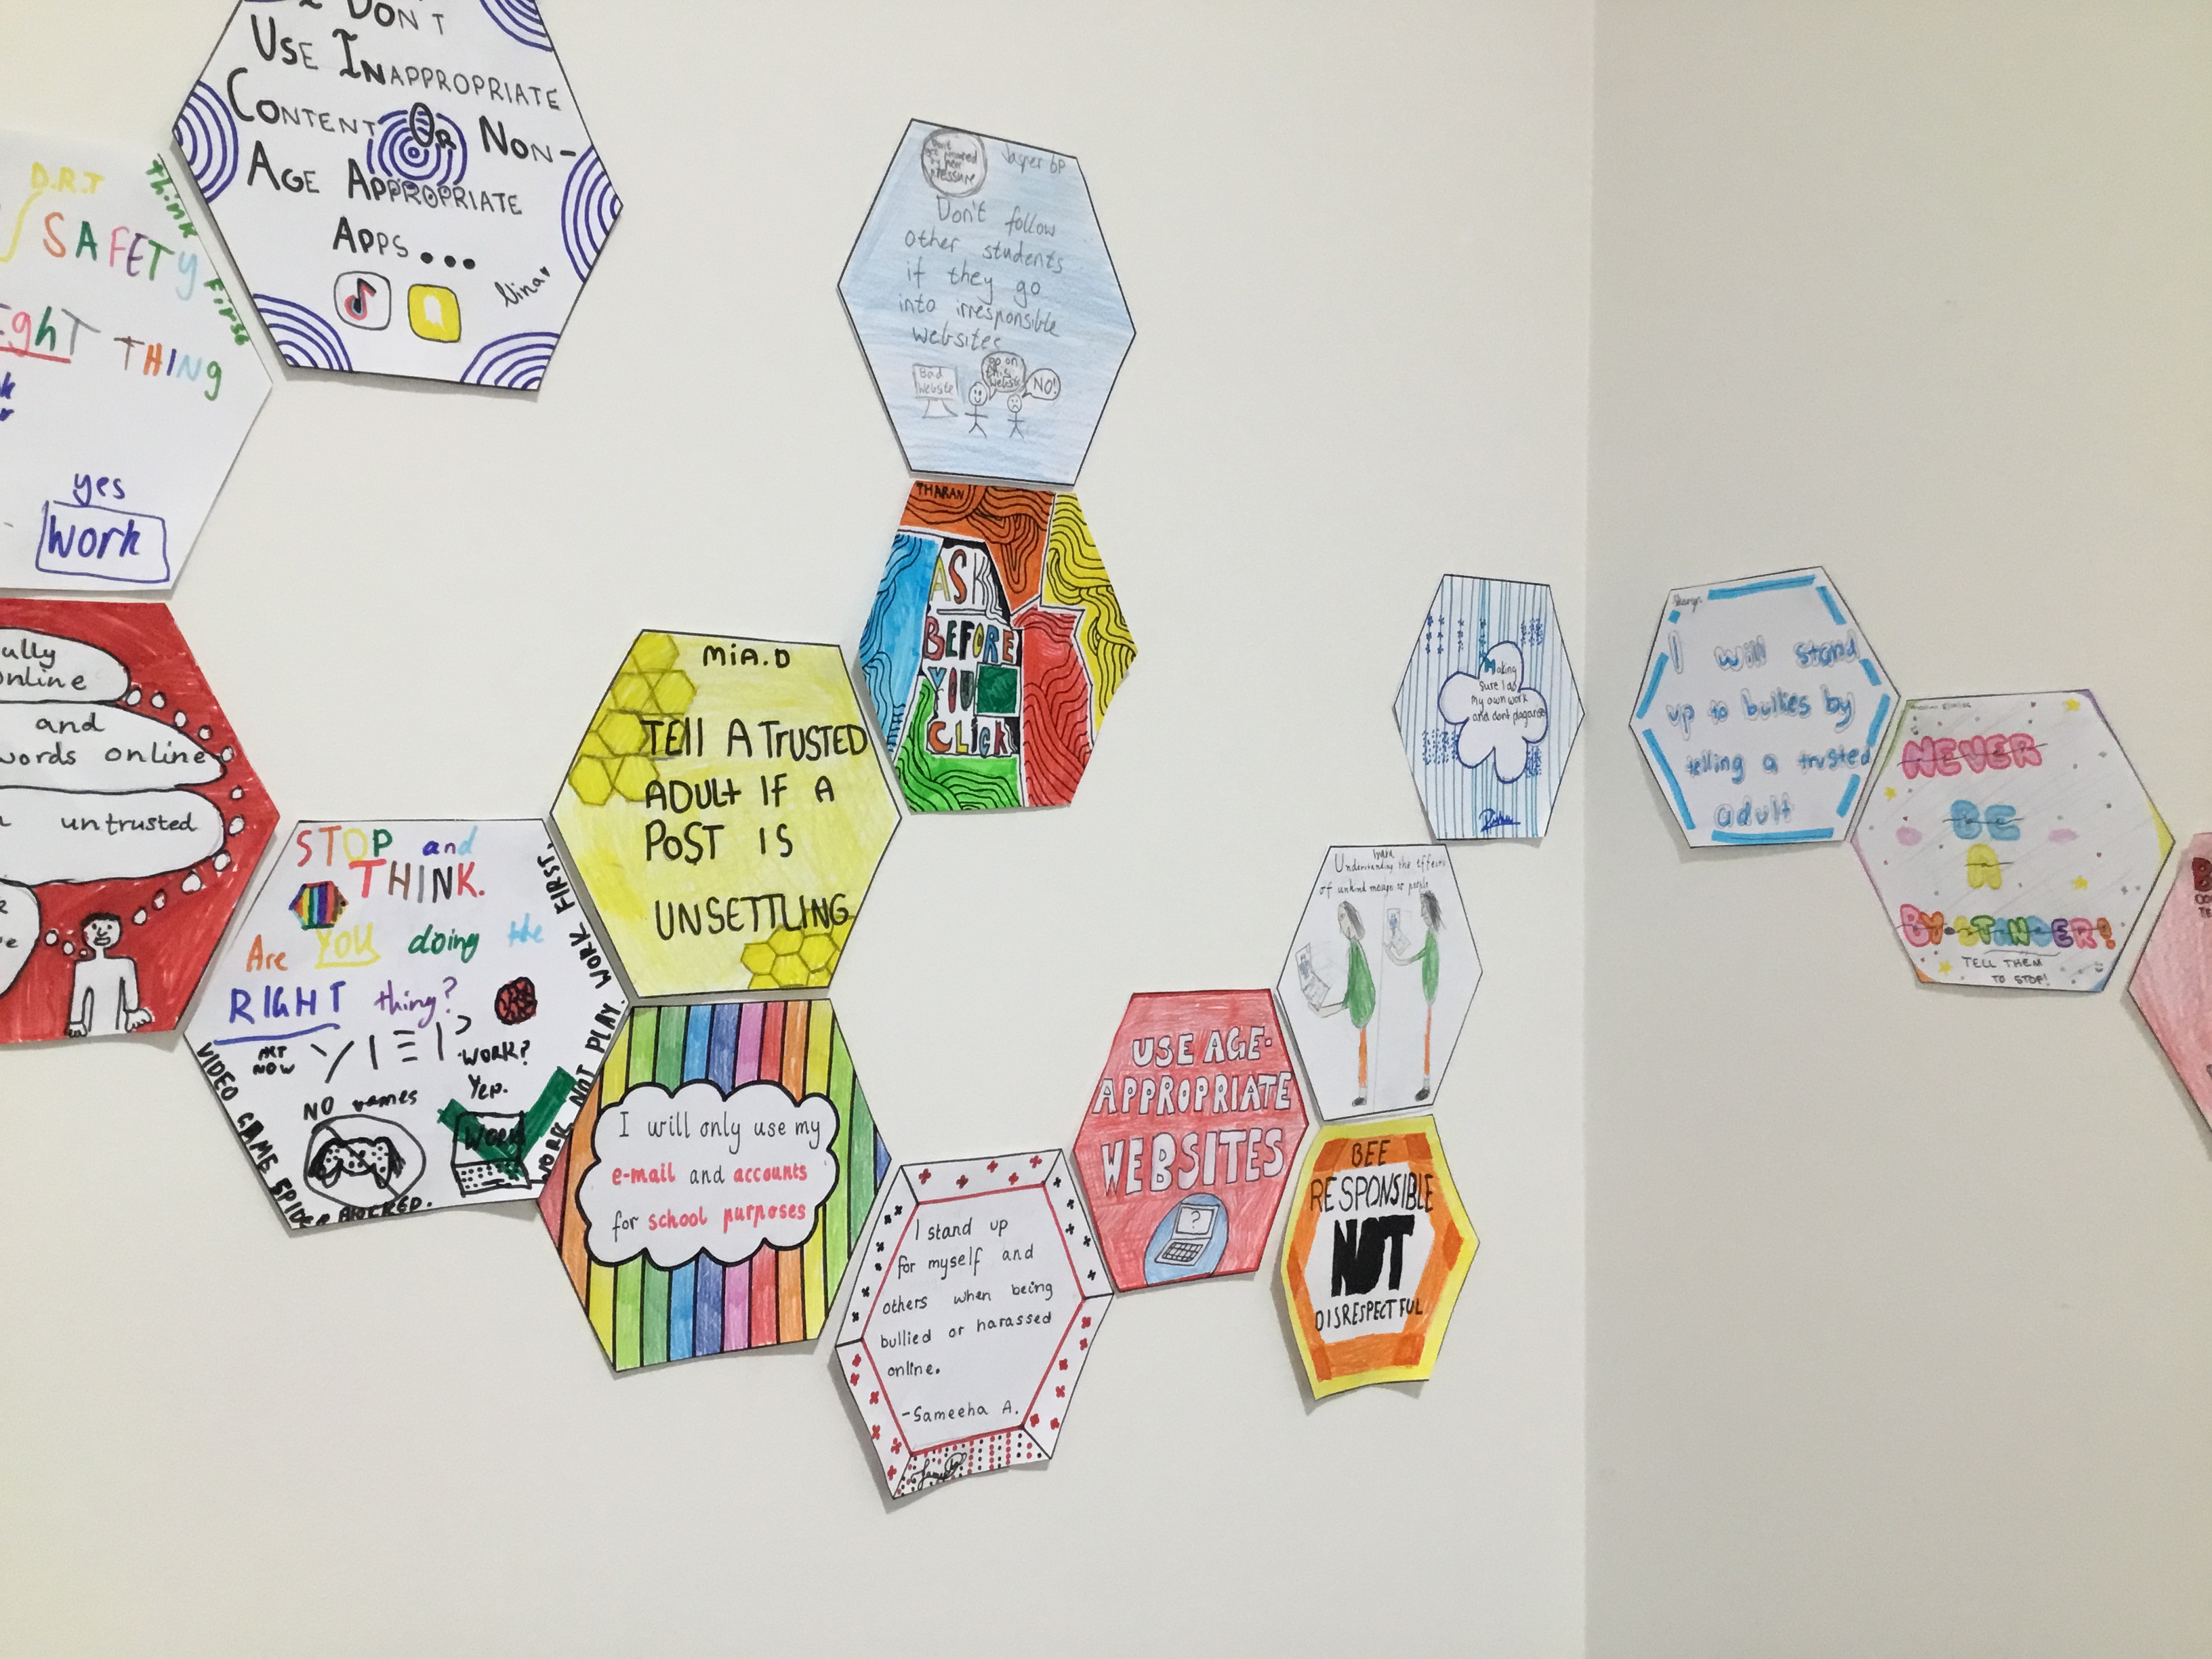 DON'T
USE INAPPROPRIATE
CONTENT OR NON-
AGE APPROPRIATE
APPS...
Nina
D.R.T
SAFETY
Think First
THING
yes
Work
ully
online
and
words online
untrusted
STOP and
THINK.
Are YOU doing the
RIGHT thing?
ACT
NOW
WORK?
YEP.
NO games
WORK
VIDEO GAME
BLOCKED.
WORK NOT PLAY. WORK FIRST.
MiA.D
TEll A TRUSTED
ADUlt IF A
POST IS
UNSETTLING
I will only use my
e-mail and accounts
for school purposes
Jasper 6P
Don't follow
other students
if they go
into irresponsible
websites
Bad
Website
go on
this
website
NO!
THARAN
ASK
BEFORE
YOU
CLICK
I stand up
for myself and
others when being
bullied or harassed
online.
-Sameeha A.
USE AGE-
APPROPRIATE
WEBSITES
?
Understanding the effects
of unkind
BEE
RESPONSIBLE
NOT
DISRESPECTFUL
Making
sure I do
my own work
and dont
I will stand
up to bullies by
telling a trusted
adult
NEVER
BE
A
BY-STANDER!
TELL THEM
TO STOP!